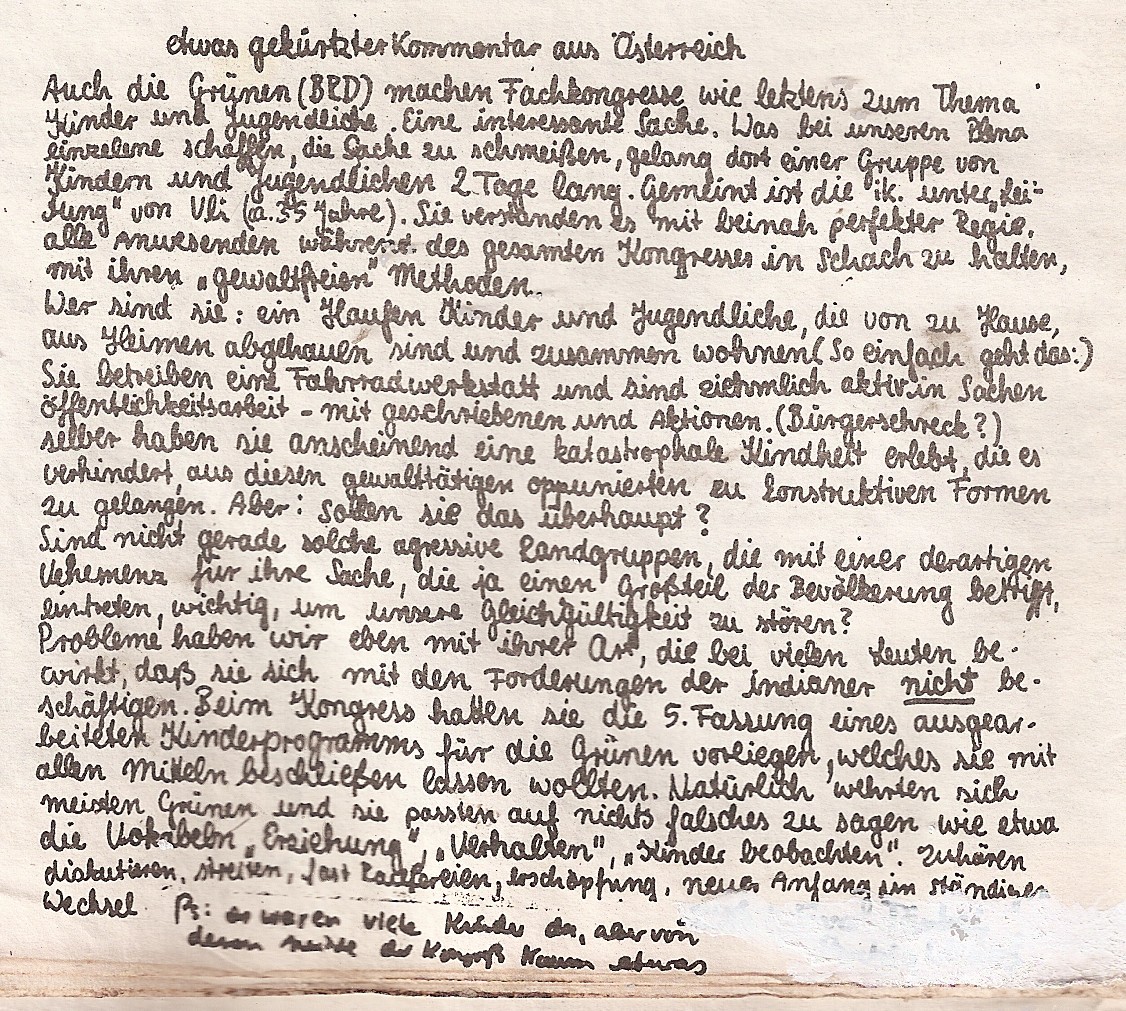 etwas gekürtzter Kommentar aus Österreich
Auch die Grünen (BRD) machen Fachkongresse, wie letztens zum Thema
Kinder und Jugendliche. Eine interessante Sache. Was bei unseren Plena
einzelene schaffen, die Sache zu schmeißen, gelang dort einer Gruppe von
Kindern und Jugendlichen 2 Tage lang. Gemeint ist die ik. unter „Lei-
tung" von Uli (ca. 35 Jahre). Sie verstanden es mit beinah perfekter Regie,
alle Anwesenden während des gesamten Kongresses in Schach zu halten,
mit ihren „gewaltfreien" Methoden.
Wer sind sie: ein Haufen Kinder und Jugendliche, die von zu Hause,
aus Heimen abgehauen sind und zusammen wohnen (So einfach geht das:)
Sie betreiben eine Fahrradwerkstatt und sind ziehmlich aktiv in Sachen
öffentlichkeitsarbeit - mit geschriebenen und Aktionen. (Bürgerschreck?)
selber haben sie anscheinend eine katastrophale Kindheit erlebt, die es
verhindert, aus diesen gewalttätigen oppunierten zu konstruktiven Formen
zu gelangen. Aber: Sollen sie das überhaupt?
Sind nicht gerade solche agressive Randgruppen, die mit einer derartigen
Vehemenz für ihre Sache, die ja einen Großteil der Bevölkerung betrifft,
eintreten, wichtig, um unsere Gleichgültigkeit zu stören?
Probleme haben wir eben mit ihrer Art, die bei vielen Leuten be-
wirkt, daß sie sich mit den Forderungen der Indianer nicht be-
schäftigen. Beim Kongress hatten sie die 5. Fassung eines ausgear-
beiteten Kinderprogramms für die Grünen vorliegen, welches sie mit
allen Mitteln beschließen lassen wollten. Natürlich wehrten sich
meisten Grünen und sie passten auf nichts falsches zu sagen wie etwa
die Vokabeln „Erziehung", „Verhalten", „Kinder beobachten". Zuhören
diskutieren, streiten, fast Raufereien, erschöpfung, neuer Anfang im ständigen
Wechsel Ps: es waren viele Kinder da, aber von
denen der Kongreß kaum etwas